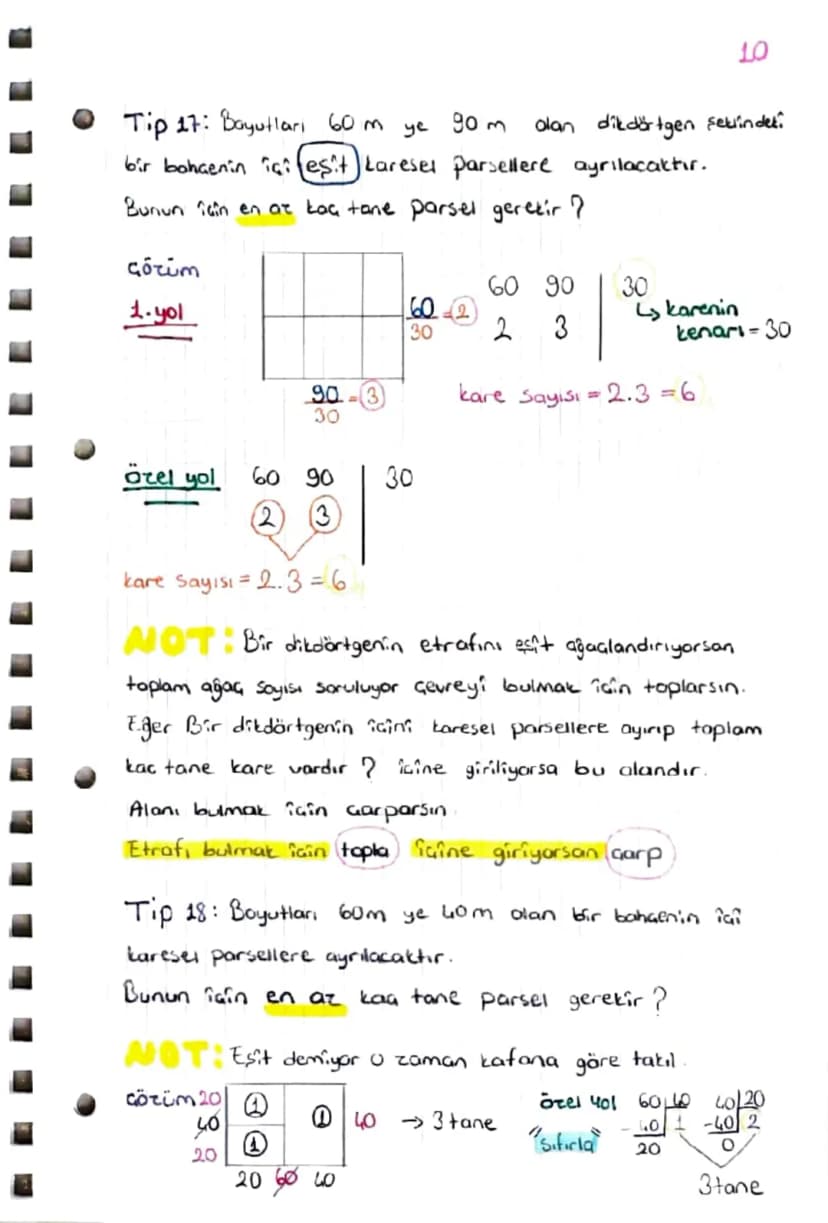 10
Tip 17: Boyutları 60 m ye 90 m olan dikdörtgen şeklindeki
bir bahçenin içi eşit karesel parsellere ayrılacaktır.
Bunun için en az kaç tane parsel gerekir?
Çözüm
1.yol
60/30 = 2
90/30 = 3
60 90 | 30
2 3
↳ karenin
kenarı = 30
kare sayısı = 2.3 = 6
özel yol 60 90 | 30
2 3
kare sayısı = 2.3 = 6
NOT: Bir dikdörtgenin etrafını eşit ağaçlandırıyorsan
toplam ağaç sayısı soruluyor çevreyi bulmak için toplarsın.
Eğer Bir dikdörtgenin içini karesel parsellere ayırıp toplam
kaç tane kare vardır? içine giriliyorsa bu alandır.
Alanı bulmak için çarparsın.
Etrafı bulmak için topla içine giriyorsan çarp
Tip 18: Boyutları 60m ye 40m olan bir bahçenin içi
karesel parsellere ayrılacaktır.
Bunun için en az kaç tane parsel gerekir?
NOT: Eşit demiyor o zaman kafana göre takıl.
çözüm 20 1
40
20 1
1 40 → 3 tane
20 60 40
özel yol
"sıfırla"
60 | 40
- 40 | 1
20
40 | 20
-40 | 2
0
3tane